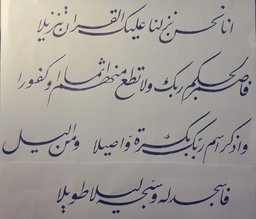 انا نحن نزلنا علیک القران تنزیلا
فاصبر لحکم ربک ولا تطع منهم اثما او کفورا
واذکر اسم ربک بکرة واصیلا ومن الیل
فاسجد له وسبحه لیلا طویلا